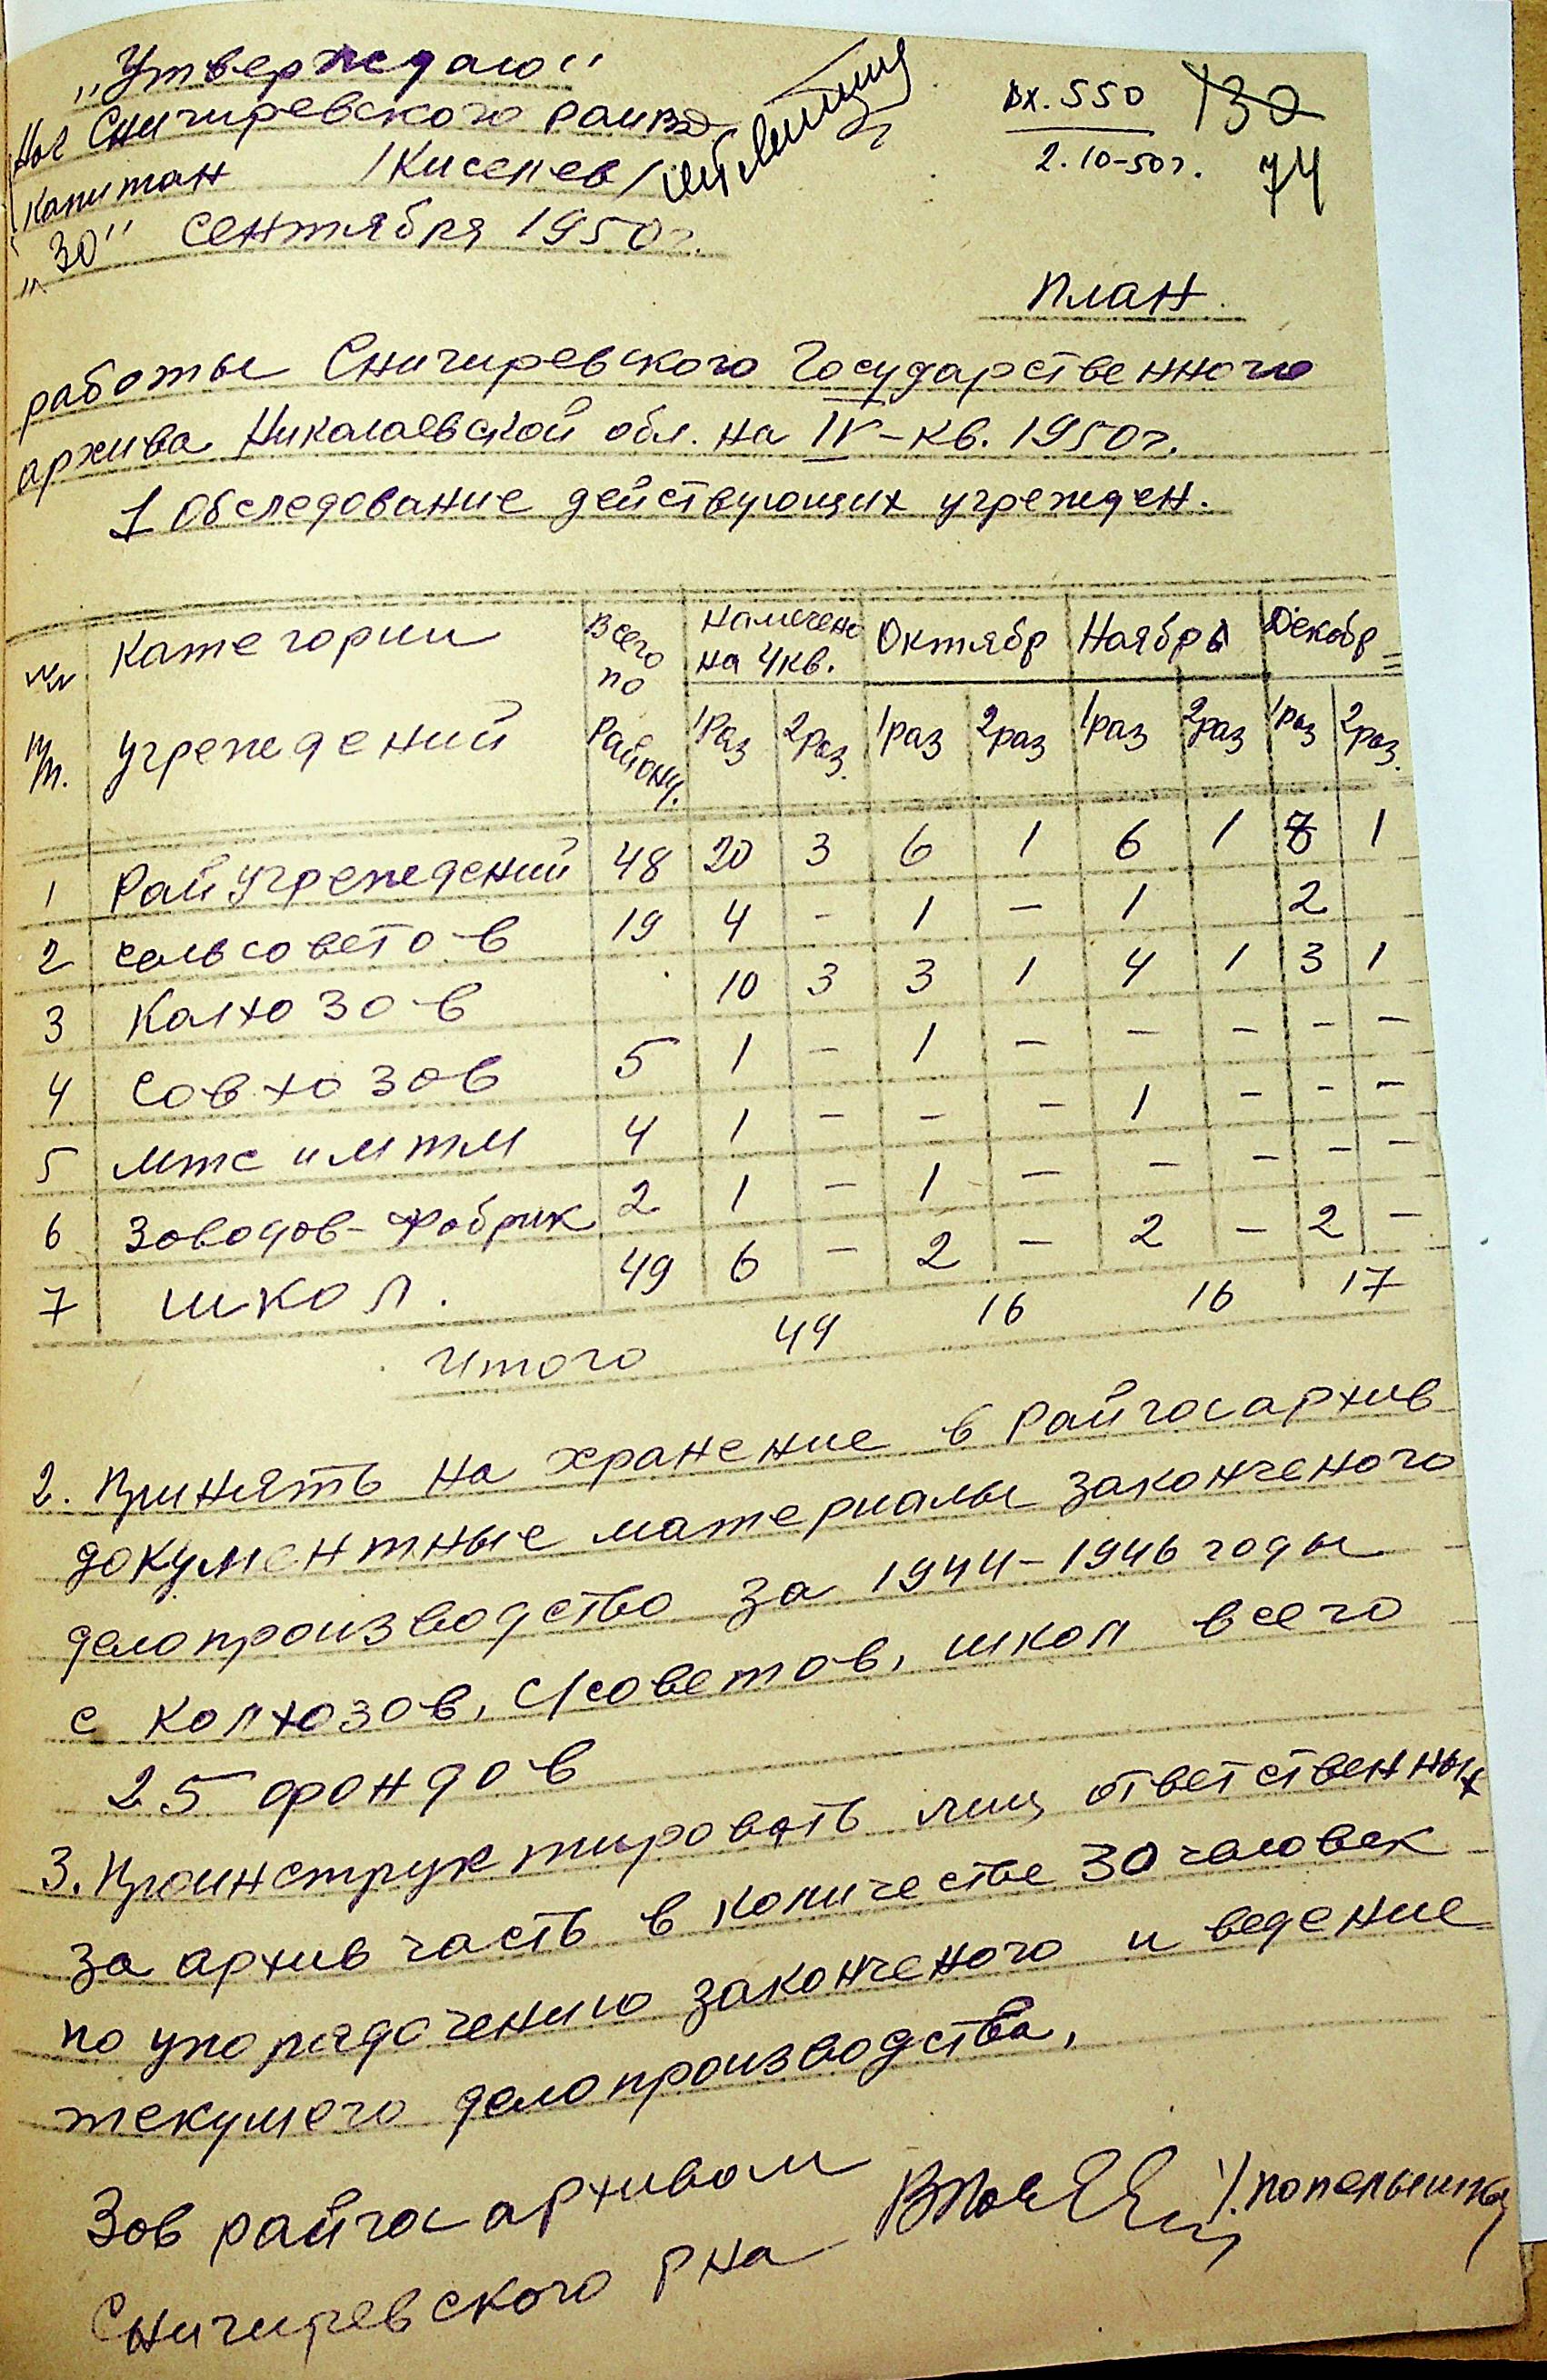 „Утверждаю"
Нач Снигиревского РайМВД
капитан /Киселев/
„30" сентября 1950г.
Вх. 550
2.10-50г.
130
74
План.
работы Снигиревского Государственного
архива Николаевской обл. на IV-кв. 1950г.
1 Обследование действующих учрежден.
№№ Категории Всего по Намечено на 4кв. Октябр Ноябрь Декабр
пп. учреждений Району. 1Раз 2Раз. 1раз 2раз 1раз 2раз 1раз 2раз.
1 РайУчреждений 48 20 3 6 1 6 1 8 1
2 сельсовето-в 19 4 - 1 - 1 2
3 Колхозо-в 10 3 3 1 4 1 3 1
4 Совхозов 5 1 - 1 - - - - -
5 мтс и мтм 4 1 - - - 1 - - -
6 Заводов-фабрик 2 1 - 1 - - - - -
7 школ. 49 6 - 2 - 2 - 2 -
Итого 49 16 16 17
2. Принять на хранение в Райгосархив
документные материалы законченого
делопроизводство за 1944-1946 годы
с колхозов, с/советов, школ всего
25 фондов
3. Проинструктировать лиц ответственных
за архив часть в количестве 30 человек
по упорядочению законченого и ведение
текущего делопроизводства,
Зав райгосархивом
Снигиревского р-на